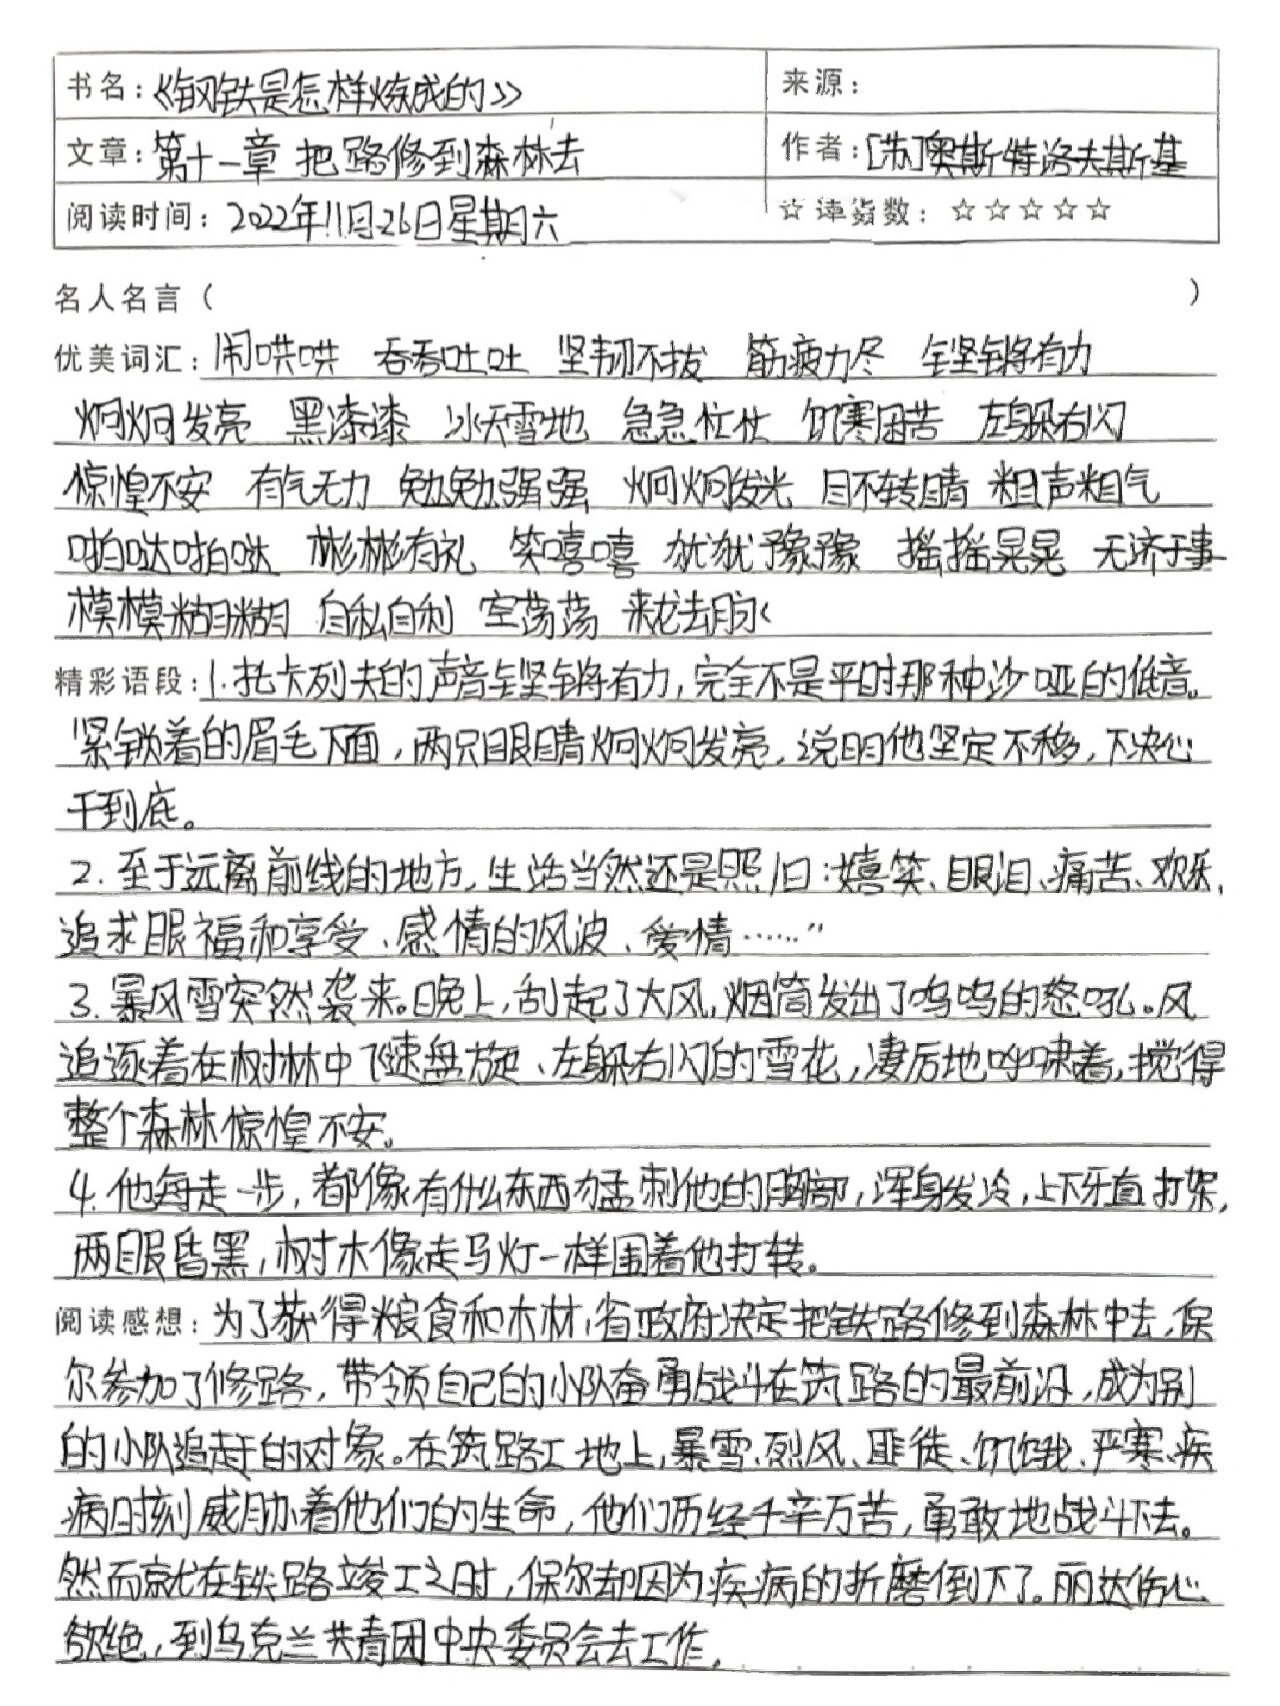 书名：《钢铁是怎样炼成的》 来源：
文章：第十一章 把路修到森林去 作者：[苏]奥斯特洛夫斯基
阅读时间：2022年11月26日星期六 ☆ 数：☆☆☆☆☆
名人名言（ ）
优美词汇：闹哄哄 吞吞吐吐 坚韧不拔 筋疲力尽 铿锵有力
炯炯发亮 黑漆漆 冰天雪地 急急忙忙 饥寒困苦 左躲右闪
惊惶不安 有气无力 勉勉强强 炯炯发光 目不转睛 粗声粗气
啪哒啪哒 彬彬有礼 笑嘻嘻 犹犹豫豫 摇摇晃晃 无济于事
模模糊糊 自私自利 空荡荡 来龙去脉
精彩语段：1.托卡列夫的声音铿锵有力，完全不是平时那种沙哑的低音。
紧锁着的眉毛下面，两只眼睛炯炯发亮，说明他坚定不移，下决心
干到底。
2.至于远离前线的地方，生活当然还是照旧：嬉笑、眼泪、痛苦、欢乐，
追求眼福和享受、感情的风波、爱情……"
3.暴风雪突然袭来。晚上，刮起了大风，烟筒发出了呜呜的怒吼。风
追逐着在树林中飞速盘旋、左躲右闪的雪花，凄厉地呼啸着，搅得
整个森林惊惶不安。
4.他每走一步，都像有什么东西勐刺他的胸部，浑身发冷，上下牙直打架，
两眼昏黑，树木像走马灯一样围着他打转。
阅读感想：为了获得粮食和木材，省政府决定把铁路修到森林中去，保
尔参加了修路，带领自己的小队奋勇战斗在筑路的最前沿，成为别
的小队追赶的对象。在筑路工地上，暴雪、烈风、匪徒、饥饿、严寒、疾
病时刻威胁着他们的生命，他们历经千辛万苦，勇敢地战斗下去。
然而就在铁路竣工之时，保尔却因为疾病的折磨倒下了。丽达伤心
欲绝，到乌克兰共青团中央委员会去工作。